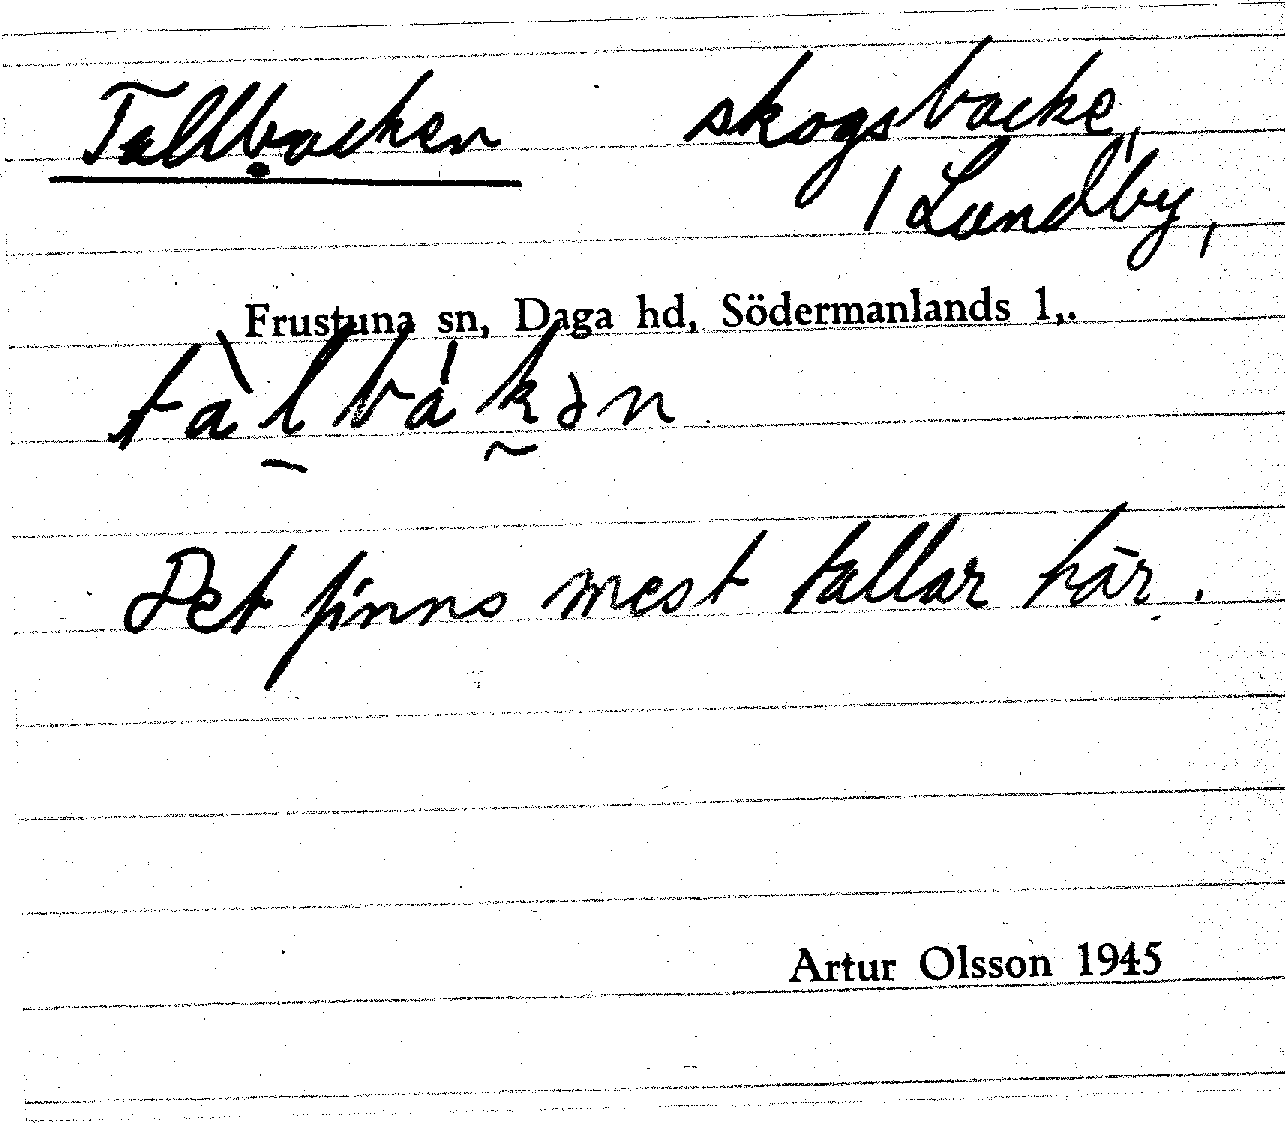 Tallbacken skogsbacke,
i Lundby,
Frustuna sn, Daga hd, Södermanlands l,.
tàl̠bák̰ən
Det finns mest tallar här.
Artur Olsson 1945